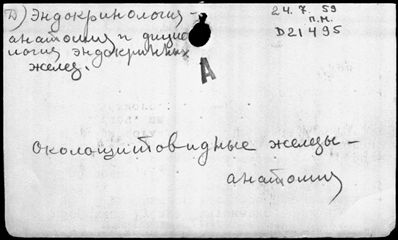 D) Эндокринология -
анатомия и физио
логия эндокринных
желез.
24.7.59
п.н.
D21495
А
околощитовидные железы -
анатомия